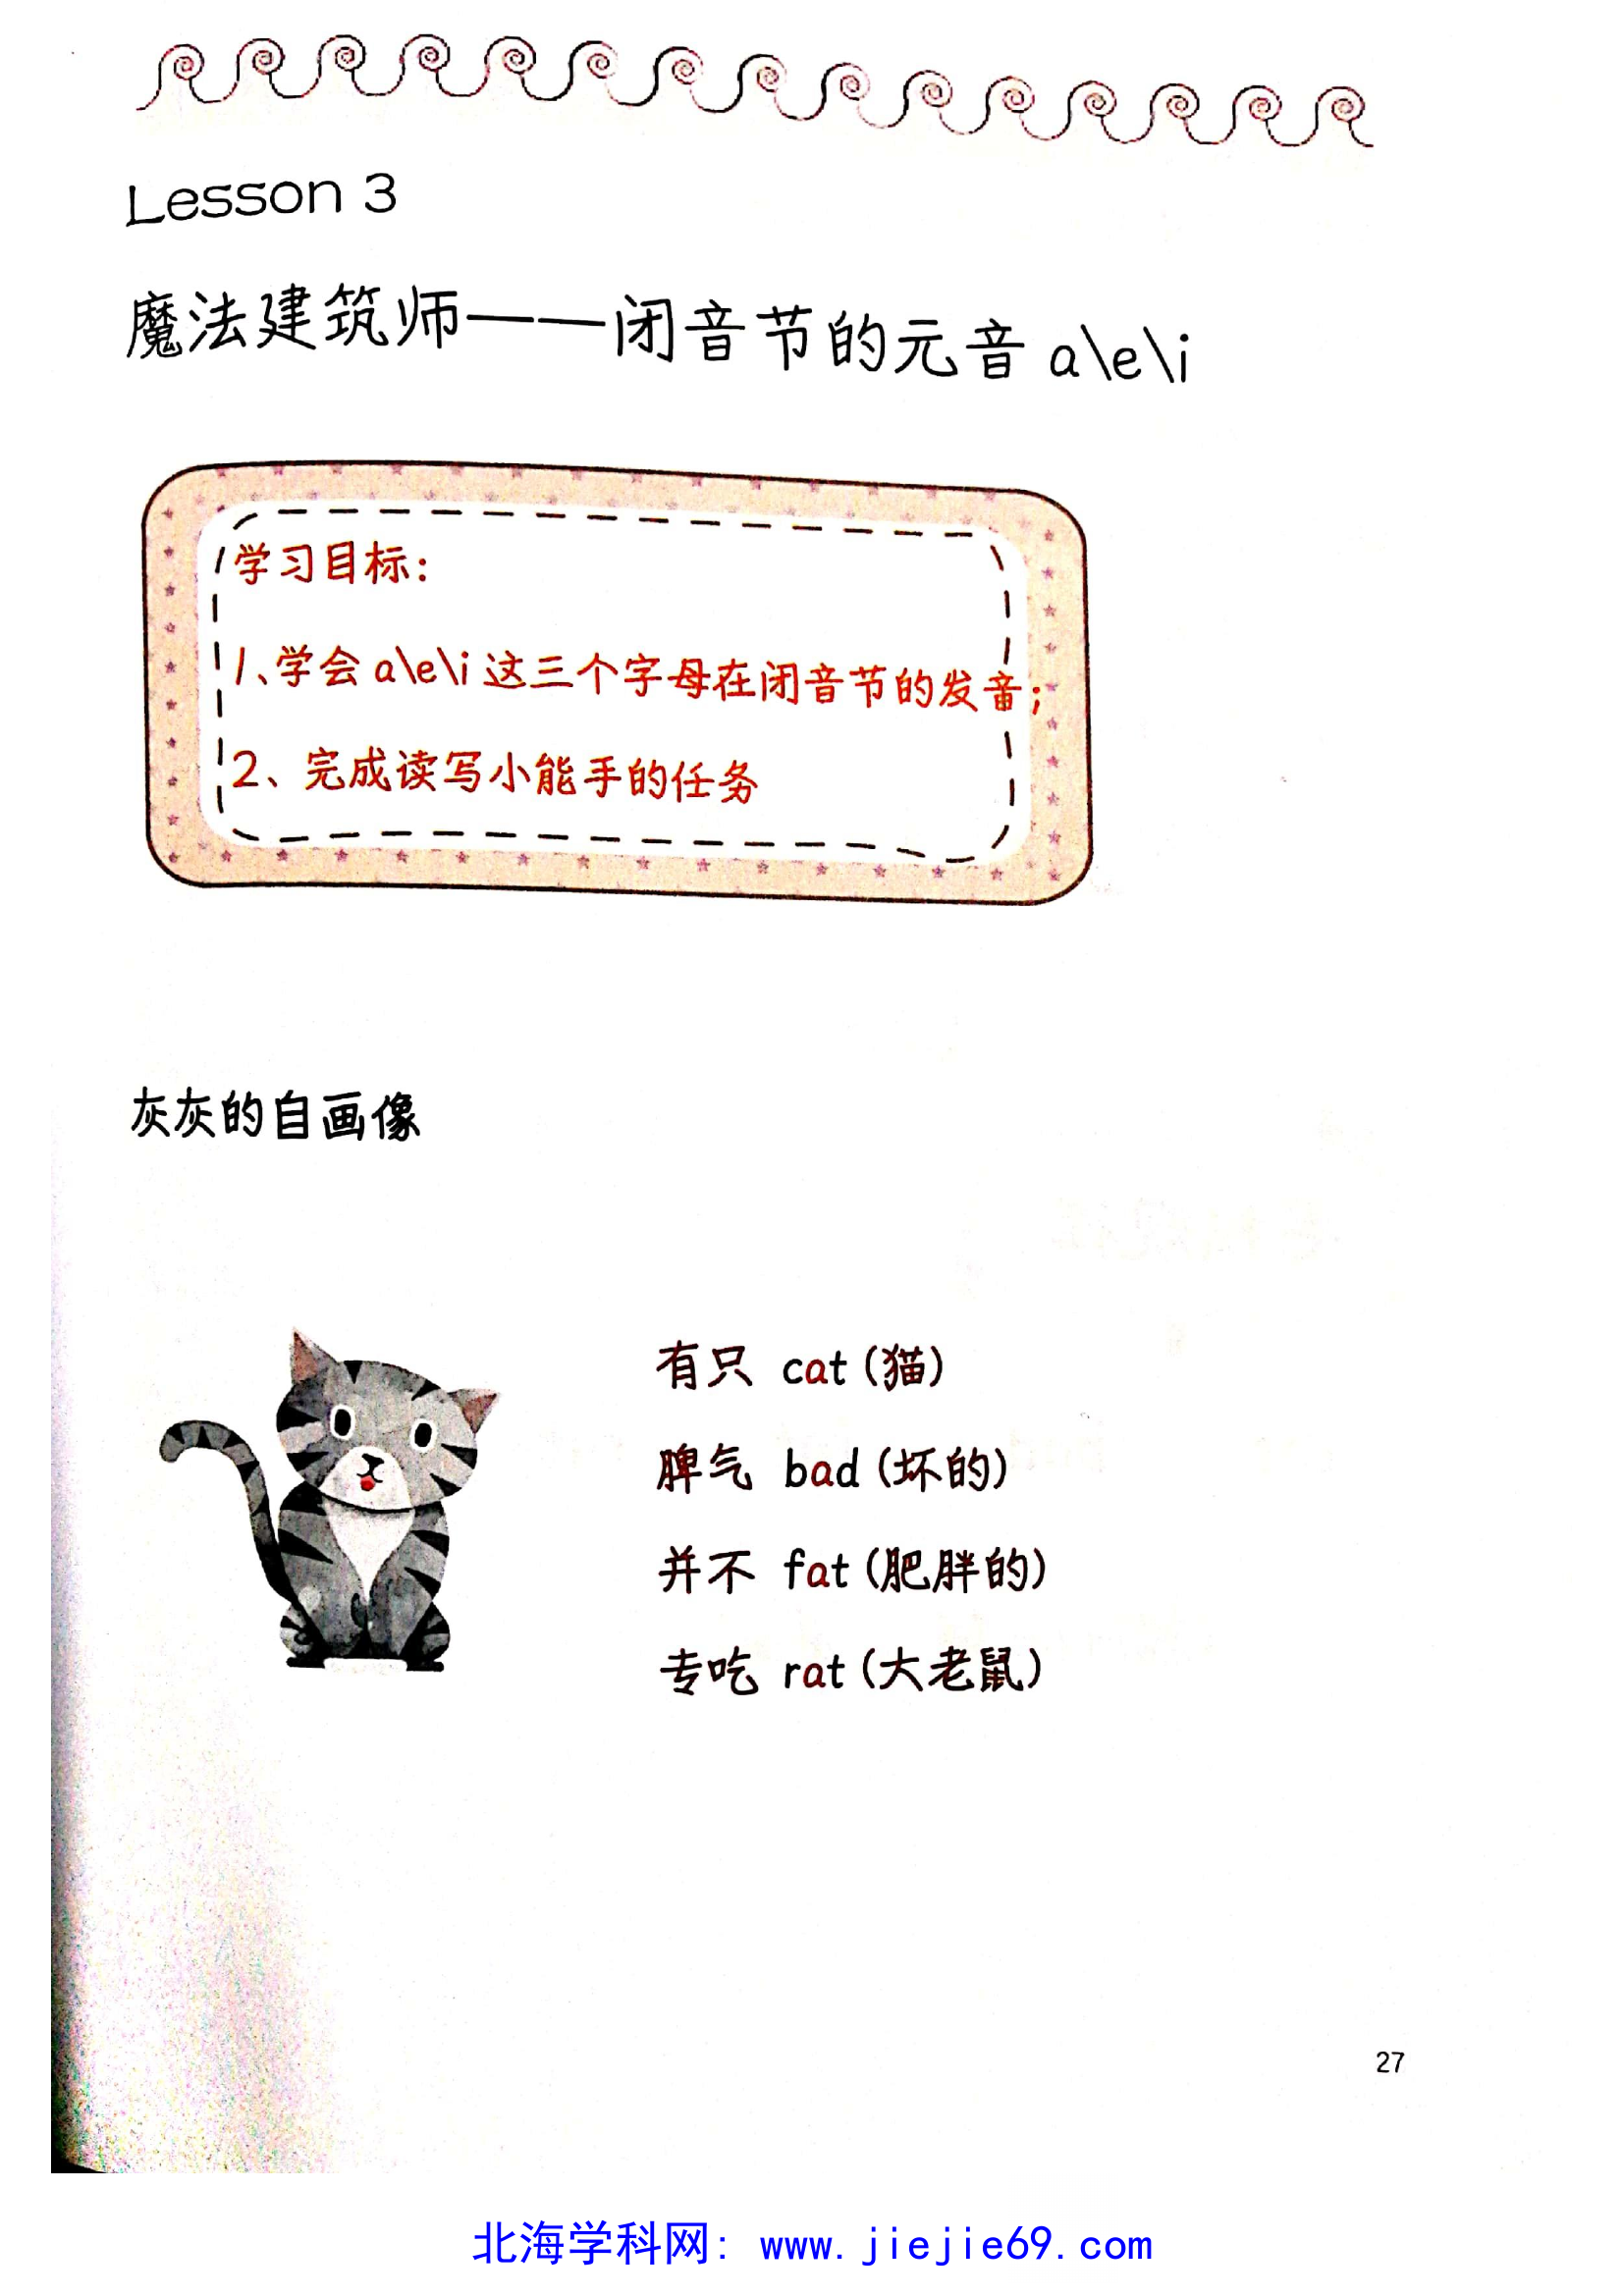 Lesson 3
魔法建筑师——闭音节的元音 a\e\i
学习目标：
1、学会 a\e\i 这三个字母在闭音节的发音；
2、完成读写小能手的任务
灰灰的自画像
有只 cat (猫)
脾气 bad (坏的)
并不 fat (肥胖的)
专吃 rat (大老鼠)
27
北海学科网: www.jiejie69.com